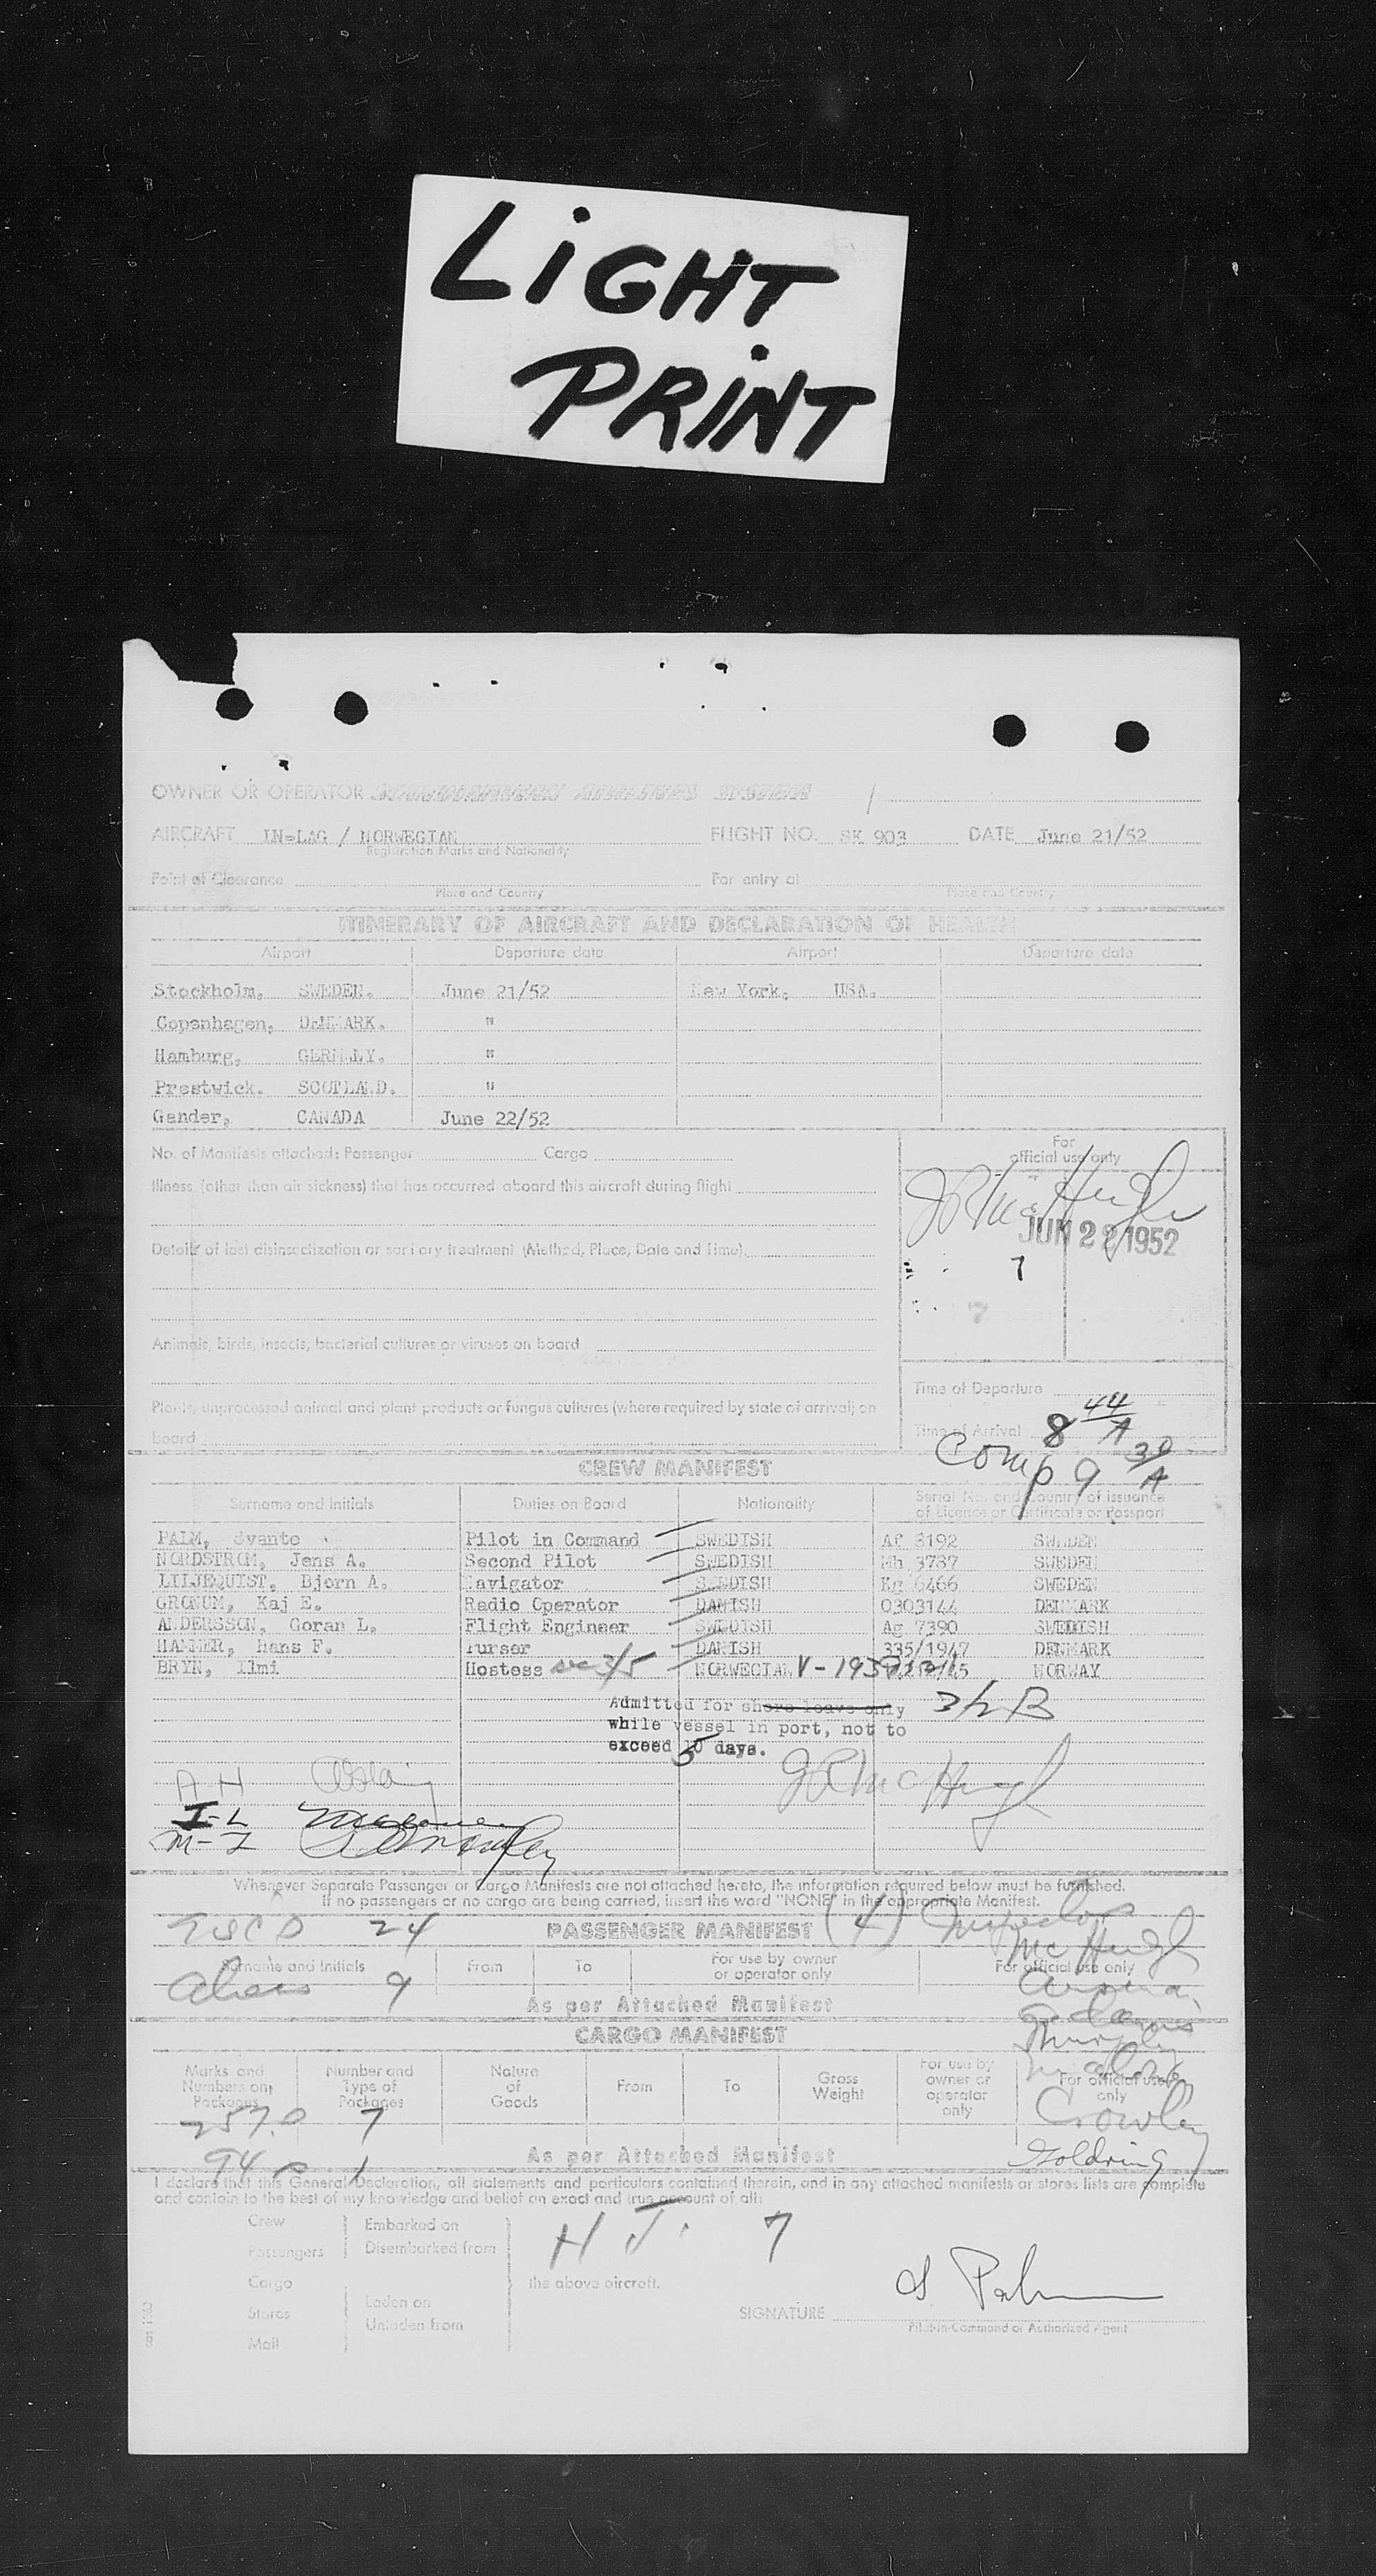 LiGHT
PRiNT
OWNER OR OPERATOR SCANDINAVIAN AIRLINES SYSTEM /
AIRCRAFT LN-LAG / NORWEGIAN FLIGHT NO. SK 903 DATE June 21/52
Registration Marks and Nationality
Point of Clearance For entry at
Place and Country Place and Country
ITINERARY OF AIRCRAFT AND DECLARATION OF HEALTH
Airport Departure date Airport Departure date
Stockholm, SWEDEN. June 21/52 New York, USA.
Copenhagen, DENMARK. "
Hamburg, GERMANY. "
Prestwick. SCOTLAND. "
Gander, CANADA June 22/52
No. of Manifests attached: Passenger Cargo
For
official use only
Illness (other than air sickness) that has occurred aboard this aircraft during flight
JR McHugh
JUN 22 1952
Details of last disinsectization or sanitary treatment (Method, Place, Date and Time)
7
7
Animals, birds, insects, bacterial cultures or viruses on board
Time of Departure
Plants, unprocessed animal and plant products or fungus cultures (where required by state of arrival) on
board
Time of Arrival 8 44/A
Comp 9 30/A
CREW MANIFEST
Surname and Initials Duties on Board Nationality Serial No. and country of issuance
of Licence or Certificate or Passport
PALM, Svante Pilot in Command SWEDISH Af 3192 SWEDEN
NORDSTROM, Jens A. Second Pilot SWEDISH Mh 3787 SWEDEN
LILJEQUIST, Bjorn A. Navigator SWEDISH Kg 6466 SWEDEN
GRONUM, Kaj E. Radio Operator DANISH 0303144 DENMARK
ANDERSSON, Goran L. Flight Engineer SWEDISH Ag 7390 SWEDISH
HAMMER, Hans F. Purser DANISH 335/1947 DENMARK
BRYN, Ilmi Hostess 3/5 NORWEGIAN NORWAY
Admitted for shore leave only 3/2 B
while vessel in port, not to
exceed 10 days.
5
JR McHugh
A-H
I-L
M-Z
Whenever Separate Passenger or Cargo Manifests are not attached hereto, the information required below must be furnished.
If no passengers or no cargo are being carried, insert the word "NONE" in the appropriate Manifest.
24 PASSENGER MANIFEST Inspectors
McHugh
Surname and Initials From To For use by owner
or operator only For official use only
Aliens 9
As per Attached Manifest
CARGO MANIFEST
Murphy
Marks and
Numbers on
Packages Number and
Type of
Packages Nature
of
Goods From To Gross
Weight For use by
owner or
operator
only For official use
only
Crowley
7
As per Attached Manifest
Goldring
94 1
I declare that this General Declaration, all statements and particulars contained therein, and in any attached manifests or stores lists are complete
and contain to the best of my knowledge and belief an exact and true account of all:
Crew Embarked on
Passengers Disembarked from
H J. 7
Cargo the above aircraft.
Stores Laden on
Mail Unladen from
S. Palm
SIGNATURE
Pilot-in-Command or Authorized Agent